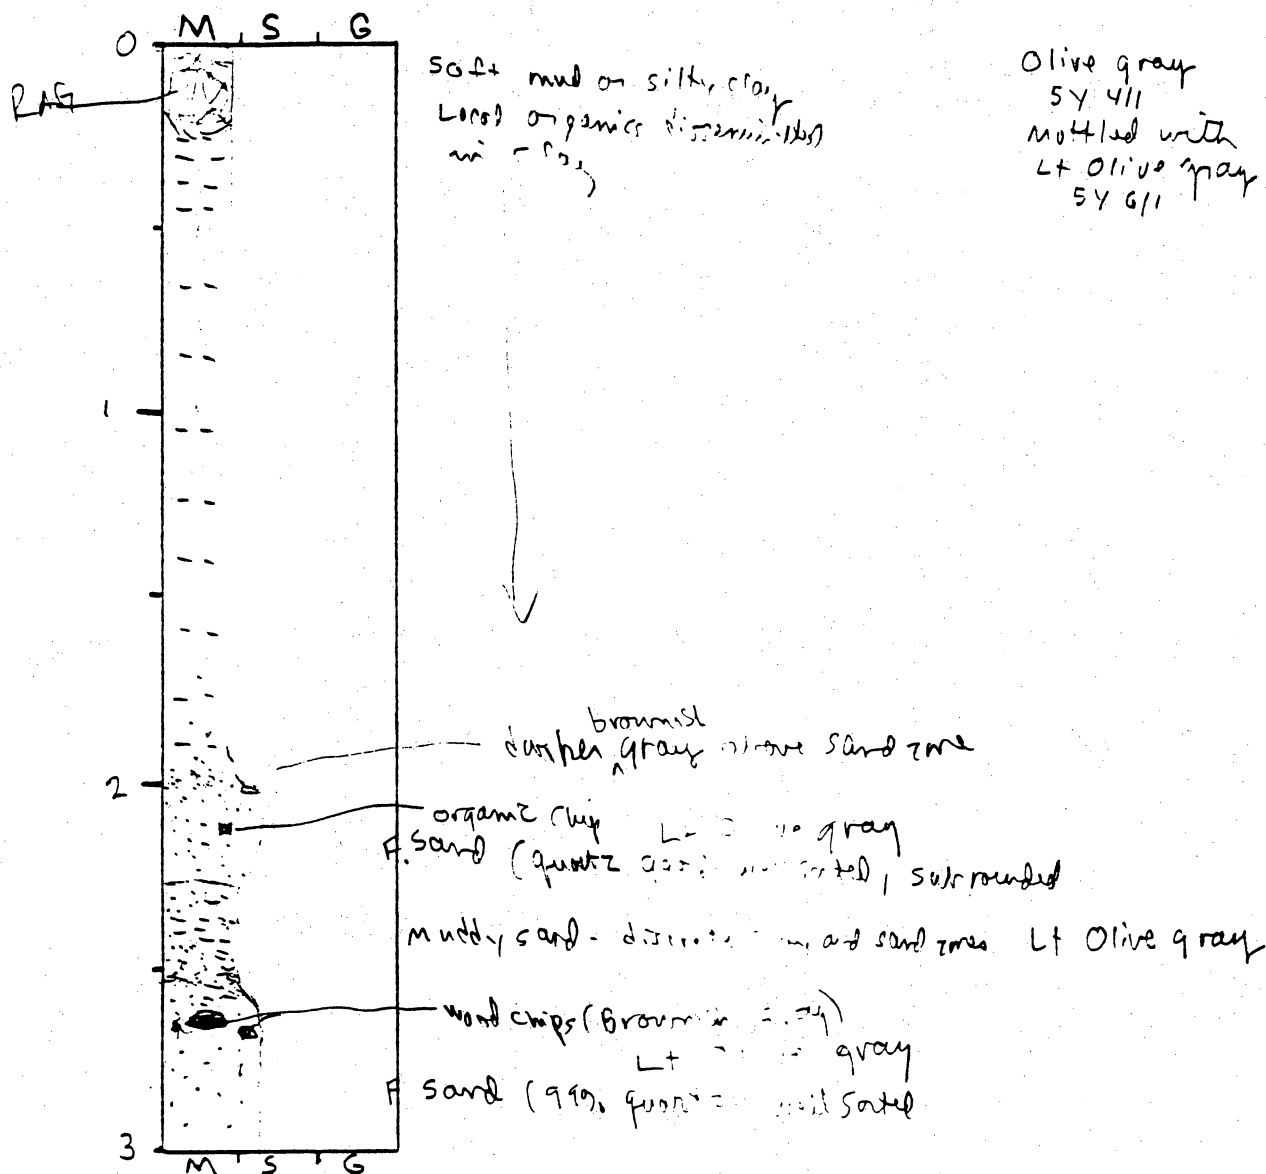 M S G
0
RAG
Soft mud or silty clay
Local organics disseminated
in
Olive gray
5Y 4/1
Mottled with
Lt Olive gray
5Y 6/1
1
brownish
darker gray above sand zone
2
organic chip
Lt gray
F. Sand (quartz subrounded
Muddy sand - and sand zones Lt Olive gray
wood chips (Brown
Lt gray
F Sand (99% quartz well sorted
3
M S G